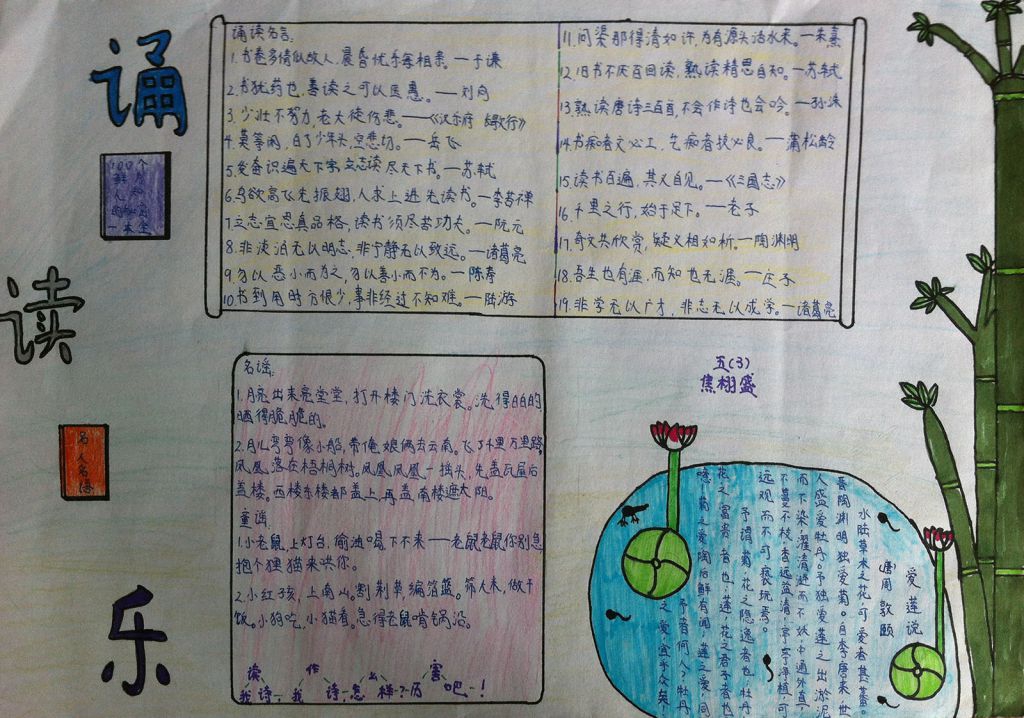 诵
读
乐
诵读名言:
1.书卷多情似故人,晨昏忧乐每相亲。—于谦
2.书犹药也,善读之可以医愚。—刘向
3.少壮不努力,老大徒伤悲。—《汉乐府 长歌行》
4.莫等闲,白了少年头,空悲切。—岳飞
5.发奋识遍天下字,立志读尽天下书。—苏轼
6.鸟欲高飞先振翅,人求上进先读书。—李苦禅
7.立志宜思真品格,读书须尽苦功夫。—阮元
8.非淡泊无以明志,非宁静无以致远。—诸葛亮
9.勿以恶小而为之,勿以善小而不为。—陈寿
10.书到用时方恨少,事非经过不知难。—陆游
11.问渠那得清如许,为有源头活水来。—朱熹
12.旧书不厌百回读,熟读精思自知。—苏轼
13.熟读唐诗三百首,不会作诗也会吟。—孙洙
14.书痴者文必工,艺痴者技必良。—蒲松龄
15.读书百遍,其义自见。—《三国志》
16.千里之行,始于足下。—老子
17.奇文共欣赏,疑义相如析。—陶渊明
18.吾生也有涯,而知也无涯。—庄子
19.非学无以广才,非志无以成学。—诸葛亮
名谣:
1.月亮出来亮堂堂,打开楼门洗衣裳。洗得白白的
晒得脆脆的。
2.月儿弯弯像小船,带俺娘俩去云南。飞了千里万里路
凤凰落在梧桐树。凤凰凤凰一摆头,先盖瓦屋后
盖楼。西楼东楼都盖上,再盖南楼遮太阳。
童谣:
1.小老鼠,上灯台,偷油喝下不来——老鼠老鼠你别急
抱个狸猫来哄你。
2.小红孩,上南山。割荆草,编箔蓝。筛大米,做干
饭。小狗吃,小猫看。急得老鼠啃锅沿。
读 作 么 害
我诗—我 诗—怎 样—?厉 吧—!
五(3)
焦栩盛
爱莲说
唐 周敦颐
水陆草木之花,可爱者甚蕃。
晋陶渊明独爱菊。自李唐来,世
人盛爱牡丹。予独爱莲之出淤泥
而不染,濯清涟而不妖,中通外直,
不蔓不枝,香远益清,亭亭净植,可
远观而不可亵玩焉。
予谓菊,花之隐逸者也;牡丹,
花之富贵者也;莲,花之君子者也。
噫!菊之爱,陶后鲜有闻;莲之爱,同
予者何人?牡丹
之爱,宜乎众矣!